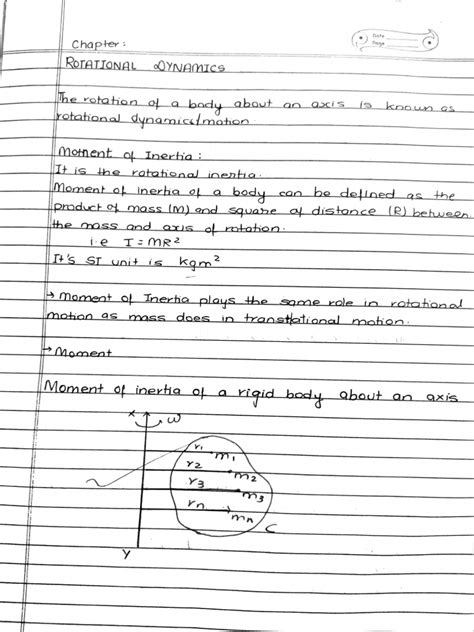 Date
Page
Chapter:
ROTATIONAL DYNAMICS
The rotation of a body about an axis is known as
rotational dynamics/motion
Moment of Inertia:
It is the rotational inertia.
Moment of inertia of a body can be defined as the
product of mass (M) and square of distance (R) between
the mass and axis of rotation.
i.e I = MR²
It's SI unit is kgm²
→ Moment of Inertia plays the same role in rotational
motion as mass does in translational motion.
→ Moment
Moment of inertia of a rigid body about an axis
X ω
r₁ m₁
r₂ m₂
r₃ m₃
rₙ mₙ
C
Y